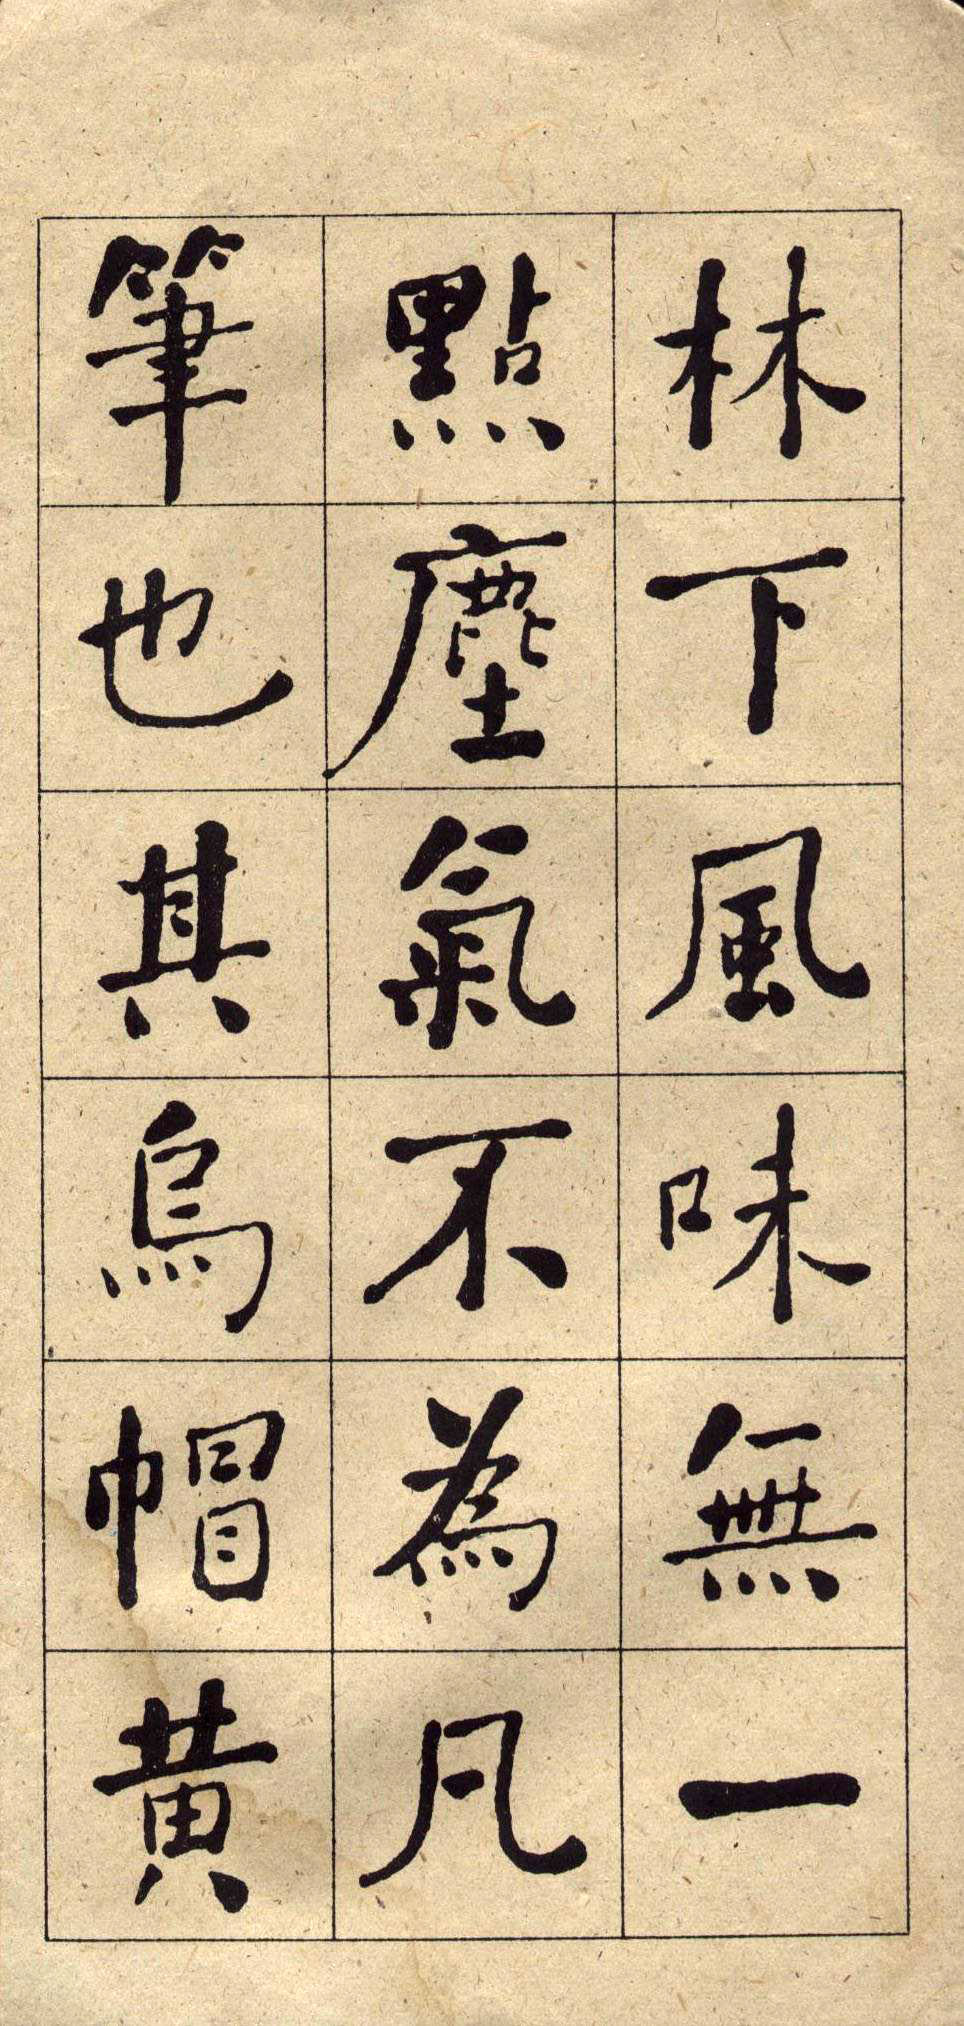 林下風味無一
點塵氣不為凡
筆也其烏帽黄